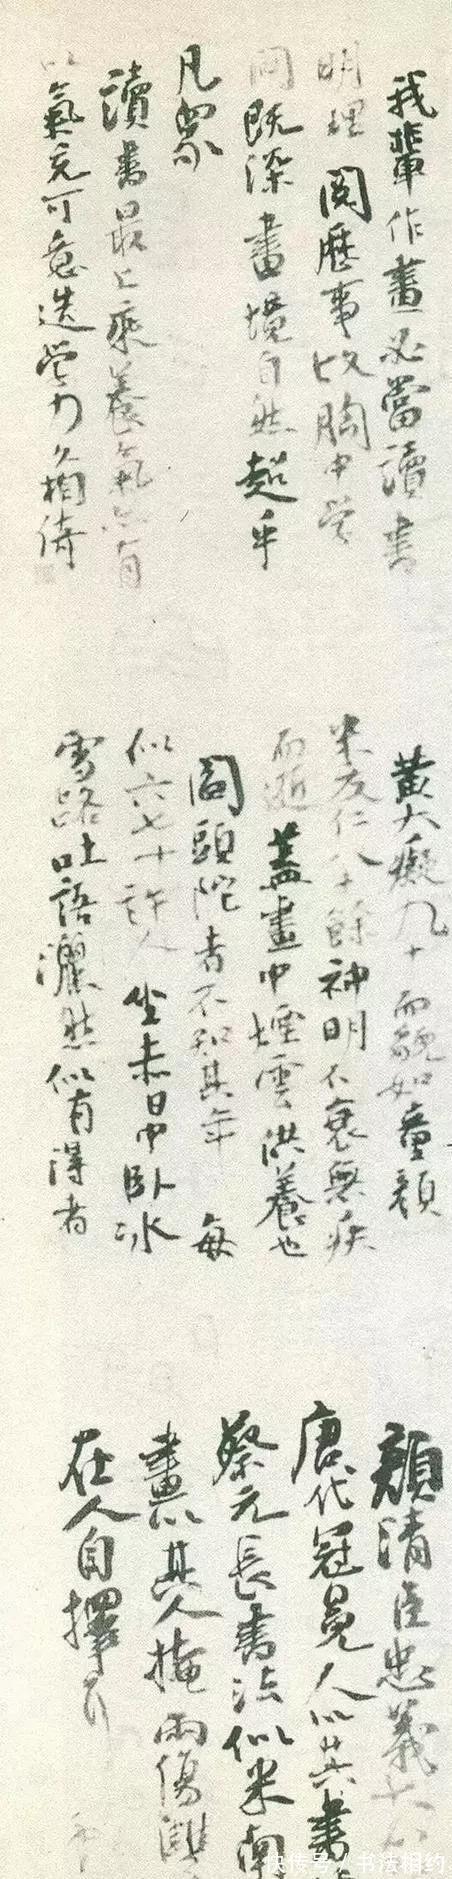 我輩作畫必當讀書
明理閱歷事故胸中學
問既深畫境自然超乎
凡眾
讀書最上乘養氣亦有
以氣充可意造學力久相倚
黃大癡九十而貌如童顏
米友仁八十餘神明不衰無疾
而逝蓋畫中煙雲洪養也
閻頭陀者不知其年每
似六七十許人坐赤日中臥冰
雪路吐語灑然似有得者
顏清臣忠義大
唐代冠冕人以其書
蔡元長書法似米南
畫以其人掩兩傷
在人自擇耳
快传号/书法相约